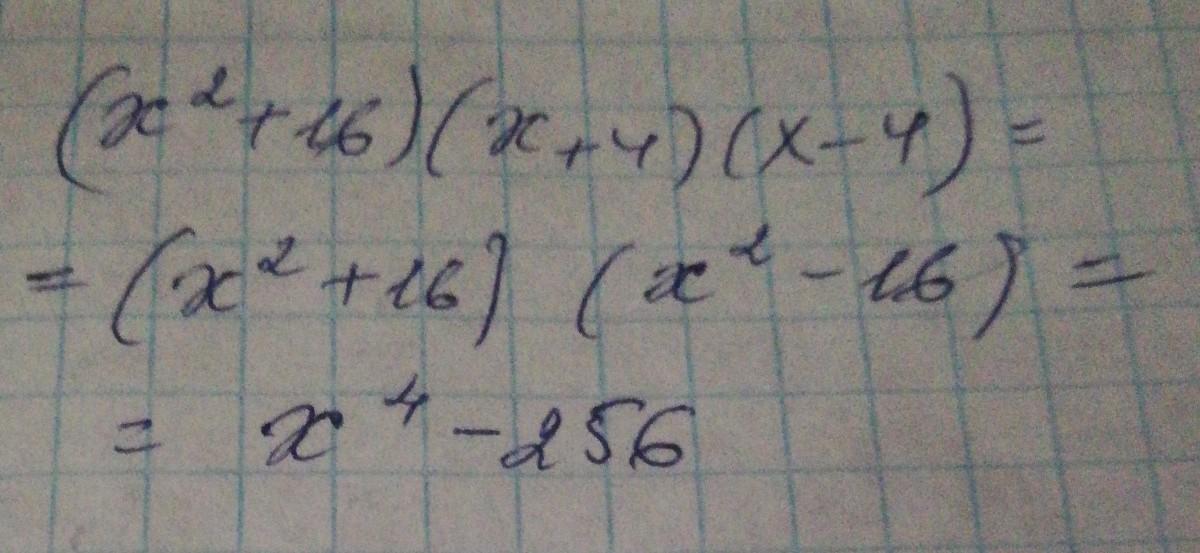 (x²+16)(x+4)(x-4)=
=(x²+16)(x²-16)=
=x⁴-256